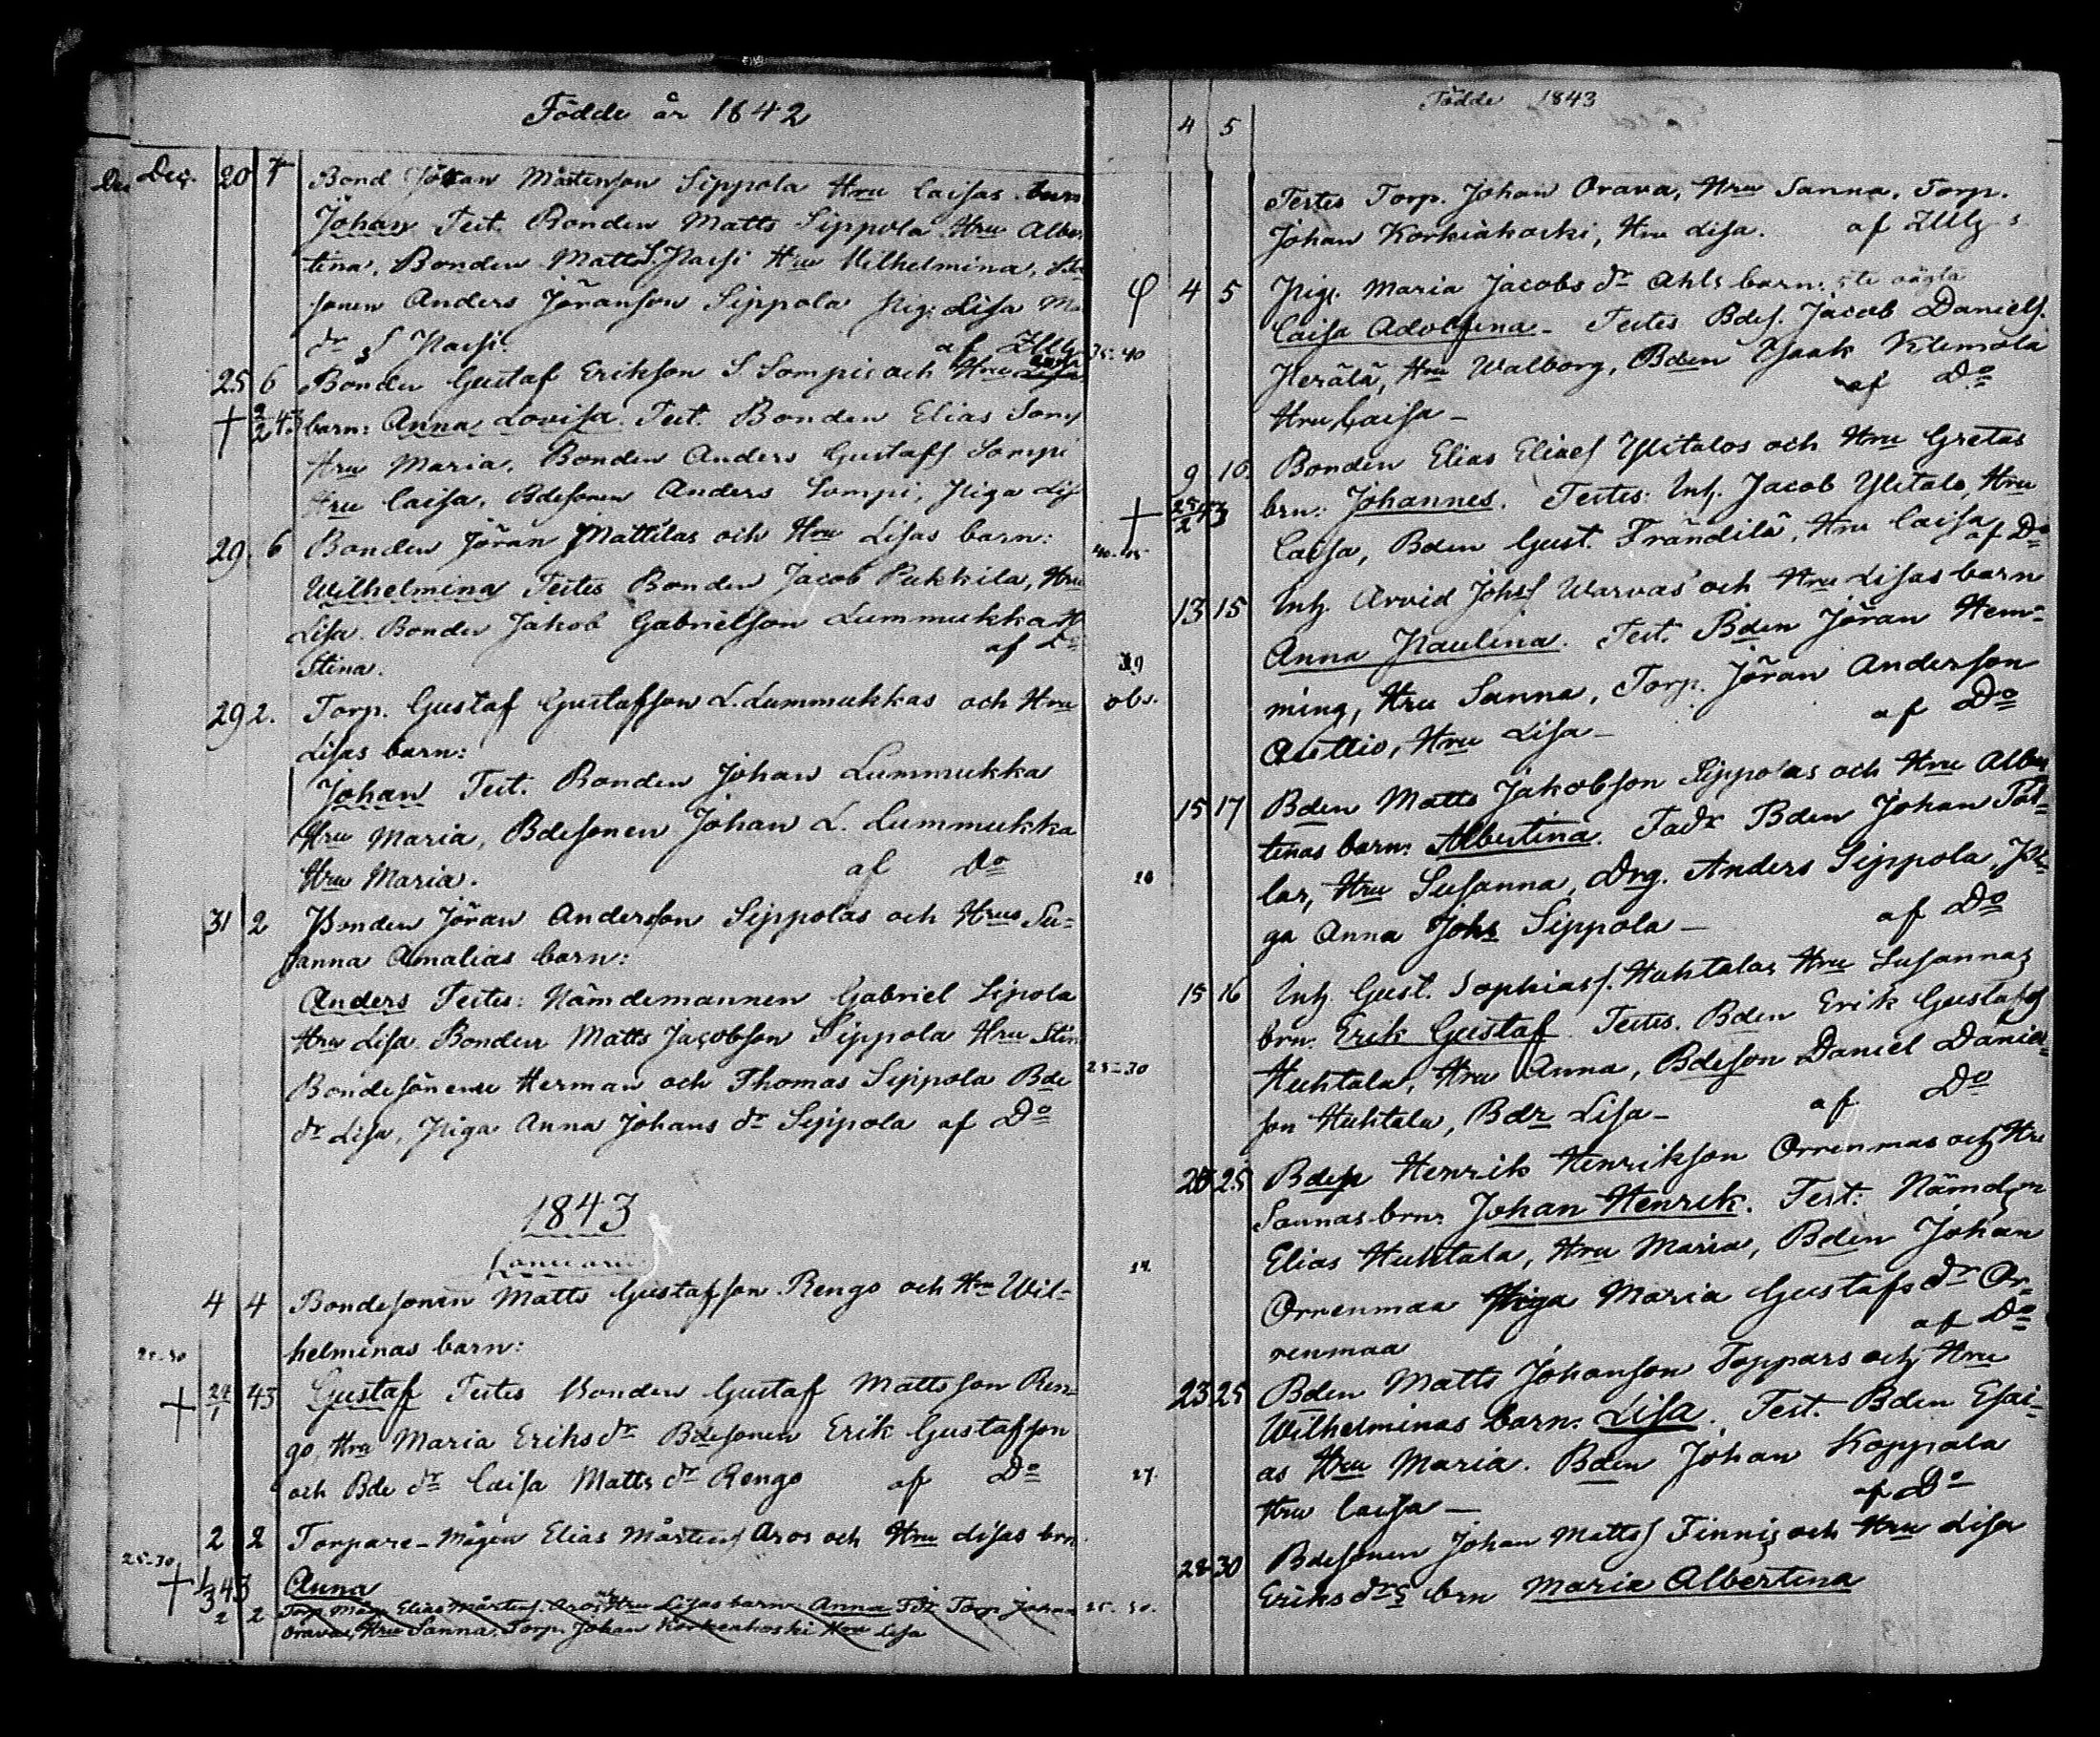 Födde år 1842
Dec. 20 Bond Jöran Mårtenson Sippola Hru Caisas barn
Johan Test. Bonden Matts Sippola Hru Alber
tina, Bonden Matts Passi Hru Vilhelmina,
sonen Anders Jöranson Sippola Pig: Lisa
dr Passi. af
25 6 Bonden Gustaf Erikson S Sompis och Hru
† 2/2 43 barn: Anna Lovisa. Test. Bonden Elias Somp
Hru Maria. Bonden Anders Gustafs Sompi
Hru Caisa, Bdesonen Anders Sompi, Piga Lis
29 6 Bonden Jöran Mattilas och Hru Lisas barn:
Wilhelmina Testes Bonden Jacob Pukkila, Hru
Lisa. Bonden Jakob Gabrielson Lummukka H
Stina. af Do
29 2. Torp. Gustaf Gustafson L. Lummukkas och Hru
Lisas barn:
Johan Test. Bonden Johan Lummukka
Hru Maria, Bdesonen Johan L. Lummukka
Hru Maria. af Do
31 2 Bonden Jöran Anderson Sippolas och Hrus Su-
sanna Amalias barn:
Anders Testes: Nämdemannen Gabriel Sipola
Hru Lisa. Bonden Matts Jacobson Sippola Hru Stin
Bondesönerne Herman och Thomas Sippola Bde
dr Lisa, Piga Anna Johans dr Sippola af Do
1843
Januarii
4 4 Bondesonen Matts Gustafson Rengo och Hru Wil-
helminas barn:
† 24/1 43 Gustaf Testes Bonden Gustaf Mattsson Ren-
go, Hru Maria Eriksdr Bdesonen Erik Gustafson
och Bde dr Caisa Matts dr Rengo af Do
2 2 Torpare-Mågen Elias Mårtens Aros och Hru Lisas brn
25-30 † 1/3 43 Anna
2 2 Torp. Måg. Elias Mårtens. Aros Hru Lisas barn: Anna Tdr Torp Johan
Orava, Hru Sanna. Torp. Johan Korkeakoski Hru Lisa
Födde 1843
4 5
Testes Torp. Johan Orava, Hru Sanna, Torp.
Johan Korkiakoski, Hru Lisa. af
4 5 Pig. Maria Jacobs dr Ahls barn: 5te oägta
Caisa Adolfina - Testes Bdes. Jacob Daniels.
35-40 Herälä, Hru Walborg, Bden Isaak Klemola
Hru Caisa - af Do
9 10. Bonden Elias Elias Ylitalos och Hru Gretas
† 25/2 43 brn: Johannes. Testes: Inh. Jacob Ylitalo, Hru
Caisa, Bden Gust. Frändilä, Hru Caisa af Do
13 15 Inh. Arvid Johs Warvas och Hru Lisas barn
Anna Paulina. Test. Bden Jöran Hem-
obs. ming, Hru Sanna, Torp. Jöran Anderson
Anttio, Hru Lisa - af Do
15 17 Bden Matts Jakobson Sippolas och Hru Alber
tinas barn: Albertina. Fadr Bden Johan Pat-
lar, Hru Susanna, Drg. Anders Sippola, Pi-
ga Anna Johs Sippola - af Do
15 16 Inh. Gust. Sophias. Huhtalas Hru Susannas
brn. Erik Gustaf Testes. Bden Erik Gustafs
25-30 Huhtala, Hru Anna, Bdeson Daniel Daniel-
son Huhtala, Bdr Lisa - af Do
25 Bdes Henrik Henrikson Orrenmas och Hru
Sannas brn: Johan Henrik. Test: Nämd
Elias Huhtala, Hru Maria, Bden Johan
Orrenmaa Piga Maria Gustafs dr Or-
renmaa af Do
23 25 Bden Matts Johanson Toppars och Hru
Wilhelminas barn: Lisa. Test. Bden Esai-
27. as Hru Maria. Bden Johan Koppala
Hru Caisa - af Do
28 30 Bdesonen Johan Matts Finnis och Hru Lisa
25.30. Eriksdrs brn Maria Albertina